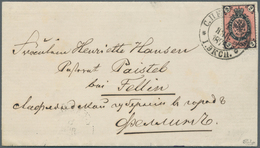 Fräulein Henriette Hansen
Pastorat Paistel
bei Fellin
Лифляндской губернии в город
Феллинъ.